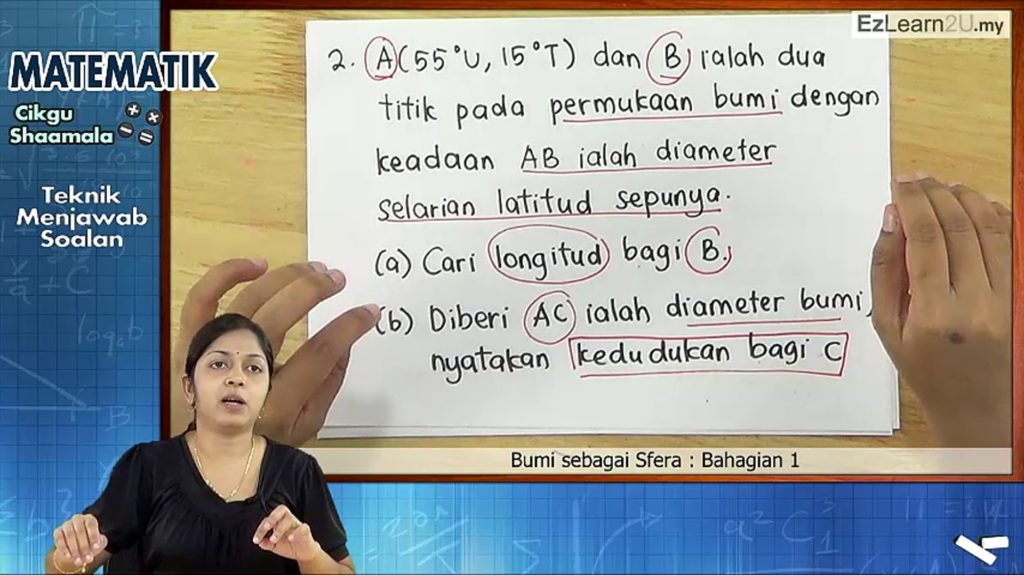 EzLearn2U.my
MATEMATIK
Cikgu
Shaamala
Teknik
Menjawab
Soalan
2. A(55°U, 15°T) dan B ialah dua
titik pada permukaan bumi dengan
keadaan AB ialah diameter
selarian latitud sepunya.
(a) Cari longitud bagi B.
(b) Diberi AC ialah diameter bumi,
nyatakan kedudukan bagi C
Bumi sebagai Sfera : Bahagian 1